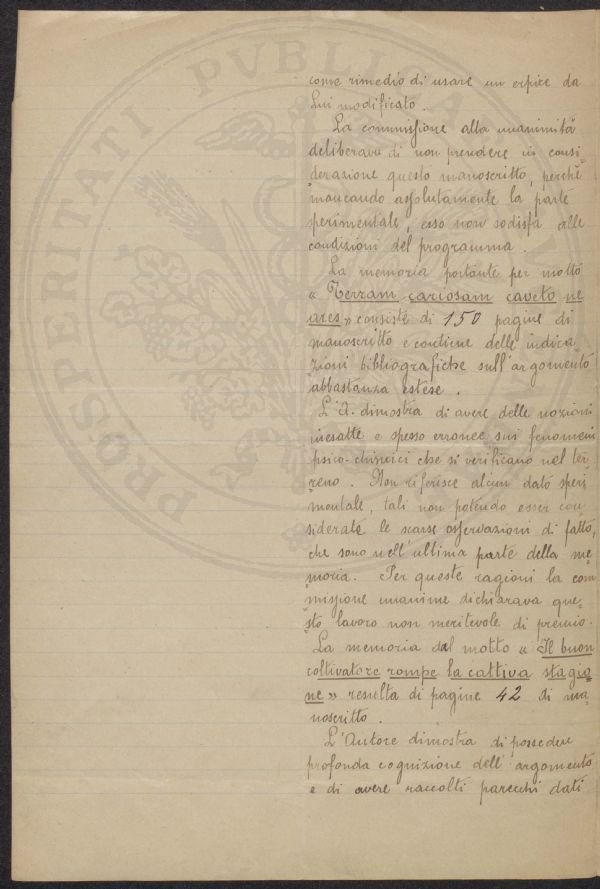 come rimedio di usare un erpice da
Lui modificato.
La commissione alla unanimità
deliberava di non prendere in consi=
derazione questo manoscritto, perchè
mancando assolutamente la parte
sperimentale, esso non sodisfa alle
condizioni del programma.
La memoria portante per motto
« Terram cariosam caveto ne
ares » consiste di 150 pagine di
manoscritto e contiene delle indica
zioni bibliografiche sull'argomento
abbastanza estese.
L'A. dimostra di avere delle nozioni
inesatte e spesso erronee sui fenomeni
psico-chimici che si verificano nel ter=
reno. Non riferisce alcun dato speri
mentale, tali non potendo esser con
siderate le scarse osservazioni di fatto,
che sono nell'ultima parte della me
moria. Per queste ragioni la com
missione unanime dichiarava que=
sto lavoro non meritevole di premio.
La memoria dal motto « Il buon
coltivatore rompe la cattiva stagio
ne » resulta di pagine 42 di ma
noscritto.
L'Autore dimostra di possedere
profonda cognizione dell'argomento
e di avere raccolti parecchi dati
PROSPERITATI PVBLICAE